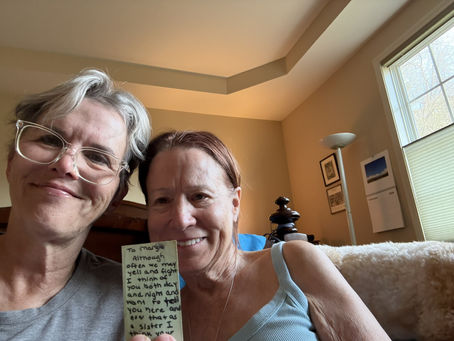 To Margie
Although
often we may
yell and fight
I think of
you both day
and night and
want to tell
you here and
now that as
a sister I
think your